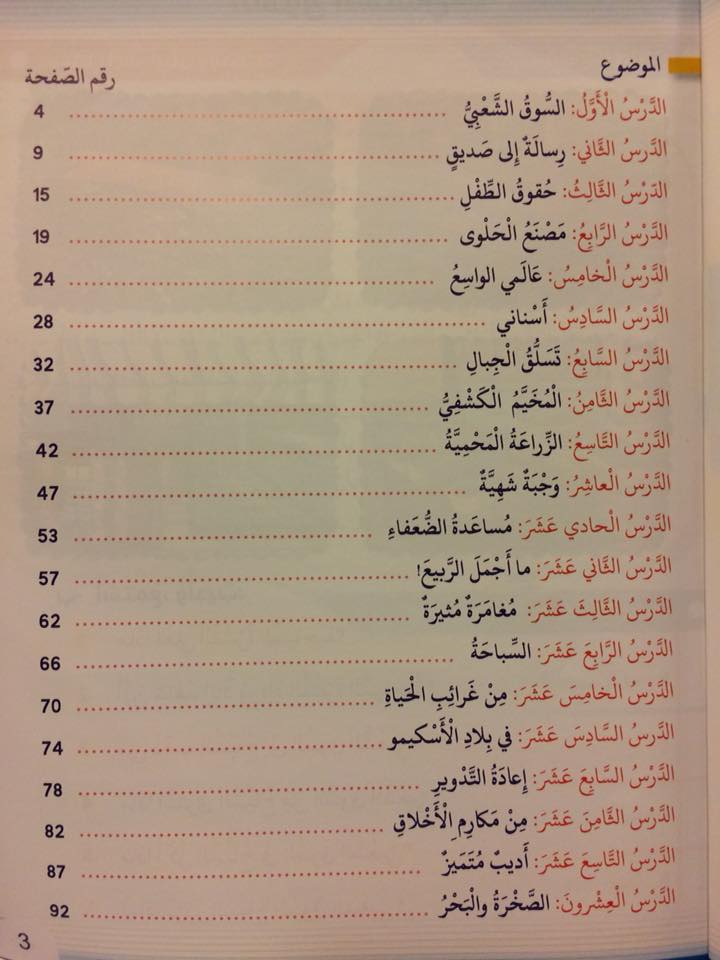 الموضوع رقم الصّفحة
الدَّرْسُ الْأَوَّلُ: السُّوقُ الشَّعْبِيُّ ........ 4
الدَّرسُ الثَّاني: رِسالَةٌ إِلى صَديقٍ ........ 9
الدّرْسُ الثَّالِثُ: حُقوقُ الطِّفْلِ ........ 15
الدَّرْسُ الرَّابِعُ: مَصْنَعُ الْحَلْوى ........ 19
الدَّرْسُ الْخامِسُ: عَالَمي الواسِعُ ........ 24
الدَّرْسُ السَّادِسُ: أَسْناني ........ 28
الدَّرْسُ السَّابِعُ: تَسَلُّقُ الْجِبالِ ........ 32
الدَّرْسُ الثَّامِنُ: الْمُخَيَّمُ الْكَشْفِيُّ ........ 37
الدَّرْسُ التَّاسِعُ: الزِّراعَةُ الْمَحْمِيَّةُ ........ 42
الدَّرْسُ الْعاشِرُ: وَجْبَةٌ شَهِيَّةٌ ........ 47
الدَّرْسُ الْحادي عَشَرَ: مُساعَدةُ الضُّعَفاءِ ........ 53
الدَّرْسُ الثَّاني عَشَرَ: ما أَجْمَلَ الرَّبيعَ! ........ 57
الدَّرْسُ الثَّالِثَ عَشَرَ: مُغامَرَةٌ مُثيرَةٌ ........ 62
الدَّرْسُ الرَّابِعَ عَشَرَ: السِّباحَةُ ........ 66
الدَّرْسُ الْخامِسَ عَشَرَ: مِنْ غَرائِبِ الْحَياةِ ........ 70
الدَّرسُ السَّادِسَ عَشَرَ: في بِلادِ الْأَسْكيمو ........ 74
الدَّرْسُ السَّابِعَ عَشَرَ: إِعادَةُ التَّدْويرِ ........ 78
الدَّرْسُ الثَّامِنَ عَشَرَ: مِنْ مَكارِمِ الْأَخْلاقِ ........ 82
الدَّرْسُ التَّاسِعَ عَشَرَ: أَديبٌ مُتَمَيزٌ ........ 87
الدَّرْسُ الْعِشْرونَ: الصَّخْرَةُ والْبَحْرُ ........ 92
3